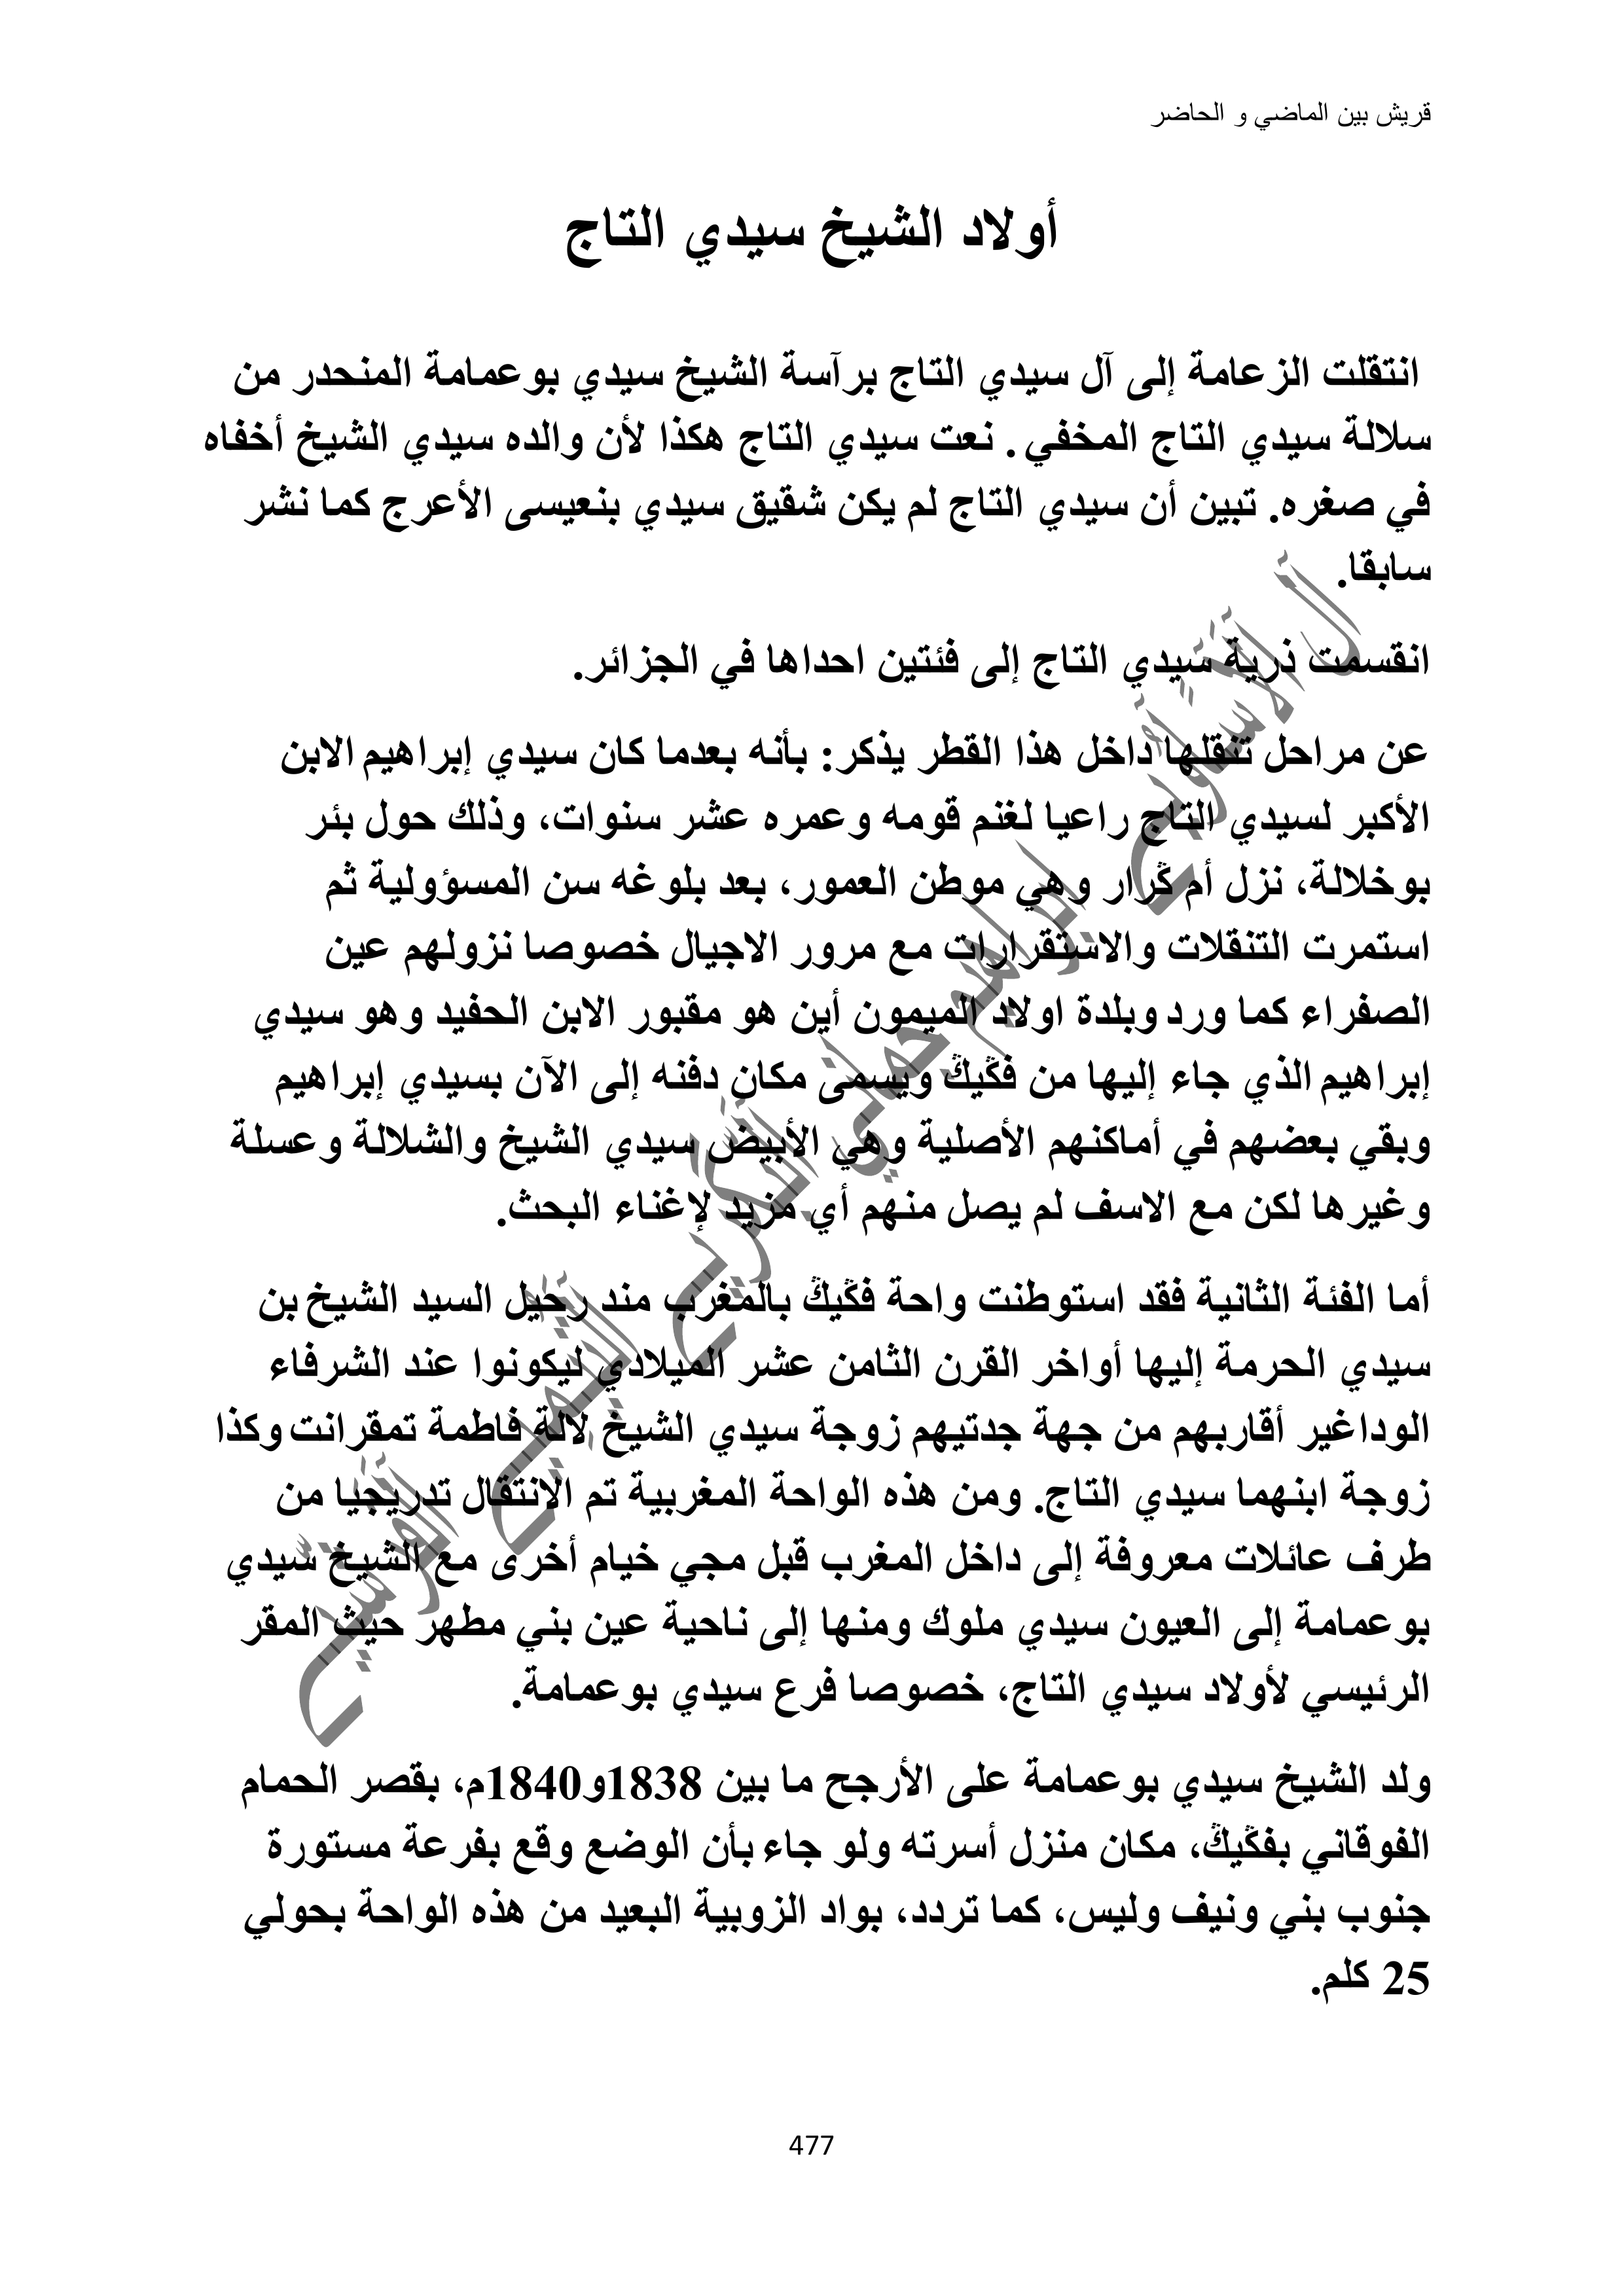 قريش بين الماضي و الحاضر
أولاد الشيخ سيدي التاج
انتقلت الزعامة إلى آل سيدي التاج برآسة الشيخ سيدي بوعمامة المنحدر من
سلالة سيدي التاج المخفي . نعت سيدي التاج هكذا لأن والده سيدي الشيخ أخفاه
في صغره. تبين أن سيدي التاج لم يكن شقيق سيدي بنعيسى الأعرج كما نشر
سابقا.
انقسمت ذرية سيدي التاج إلى فئتين احداها في الجزائر.
عن مراحل تنقلها داخل هذا القطر يذكر: بأنه بعدما كان سيدي إبراهيم الابن
الأكبر لسيدي التاج راعيا لغنم قومه وعمره عشر سنوات، وذلك حول بئر
بوخلالة، نزل أم ڭرار وهي موطن العمور، بعد بلوغه سن المسؤولية ثم
استمرت التنقلات والاستقرارات مع مرور الاجيال خصوصا نزولهم عين
الصفراء كما ورد وبلدة اولاد الميمون أين هو مقبور الابن الحفيد وهو سيدي
إبراهيم الذي جاء إليها من فڭيڭ ويسمى مكان دفنه إلى الآن بسيدي إبراهيم
وبقي بعضهم في أماكنهم الأصلية وهي الأبيض سيدي الشيخ والشلالة وعسلة
وغيرها لكن مع الاسف لم يصل منهم أي مزيد لإغناء البحث.
أما الفئة الثانية فقد استوطنت واحة فڭيڭ بالمغرب مند رحيل السيد الشيخ بن
سيدي الحرمة إليها أواخر القرن الثامن عشر الميلادي ليكونوا عند الشرفاء
الوداغير أقاربهم من جهة جدتيهم زوجة سيدي الشيخ لالة فاطمة تمقرانت وكذا
زوجة ابنهما سيدي التاج. ومن هذه الواحة المغربية تم الانتقال تدريجيا من
طرف عائلات معروفة إلى داخل المغرب قبل مجي خيام أخرى مع الشيخ سيدي
بوعمامة إلى العيون سيدي ملوك ومنها إلى ناحية عين بني مطهر حيث المقر
الرئيسي لأولاد سيدي التاج، خصوصا فرع سيدي بوعمامة.
ولد الشيخ سيدي بوعمامة على الأرجح ما بين 1838و1840م، بقصر الحمام
الفوقاني بفڭيڭ، مكان منزل أسرته ولو جاء بأن الوضع وقع بفرعة مستورة
جنوب بني ونيف وليس، كما تردد، بواد الزوبية البعيد من هذه الواحة بحولي
25 كلم.
477